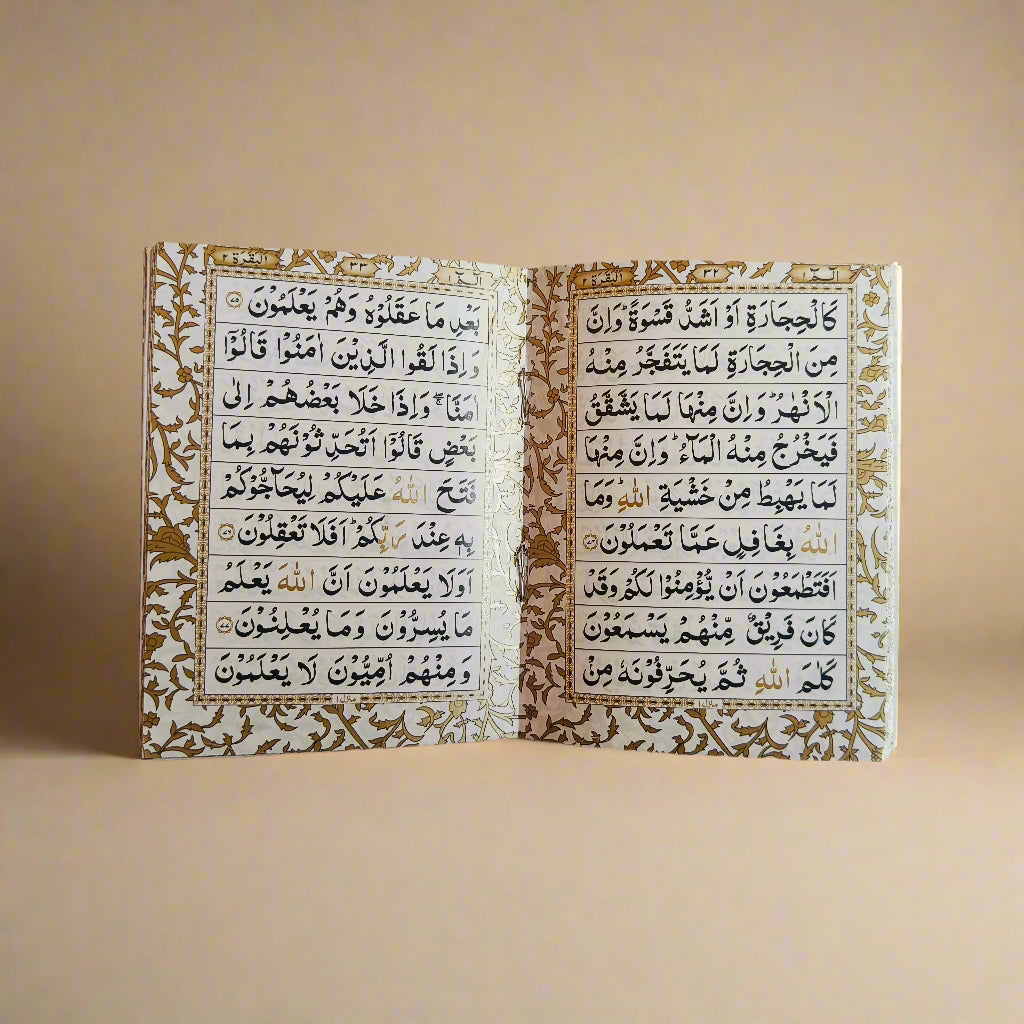 الٓمّٓ ١
٣٢
الْبَقَرَة ٢
كَالْحِجَارَةِ اَوْ اَشَدُّ قَسْوَةً ؕ وَاِنَّ
مِنَ الْحِجَارَةِ لَمَا يَتَفَجَّرُ مِنْهُ
الْاَنْهٰرُ ؕ وَاِنَّ مِنْهَا لَمَا يَشَّقَّقُ
فَيَخْرُجُ مِنْهُ الْمَآءُ ؕ وَاِنَّ مِنْهَا
لَمَا يَهْبِطُ مِنْ خَشْيَةِ اللّٰهِ ؕ وَمَا
اللّٰهُ بِغَافِلٍ عَمَّا تَعْمَلُوْنَ ۝۷۴
اَفَتَطْمَعُوْنَ اَنْ يُّؤْمِنُوْا لَكُمْ وَقَدْ
كَانَ فَرِيْقٌ مِّنْهُمْ يَسْمَعُوْنَ
كَلٰمَ اللّٰهِ ثُمَّ يُحَرِّفُوْنَهٗ مِنْۢ
الٓمّٓ ١
٣٣
الْبَقَرَة ٢
بَعْدِ مَا عَقَلُوْهُ وَهُمْ يَعْلَمُوْنَ ۝۷۵
وَاِذَا لَقُوا الَّذِيْنَ اٰمَنُوْا قَالُوْٓا
اٰمَنَّا ۚۖ وَاِذَا خَلَا بَعْضُهُمْ اِلٰى
بَعْضٍ قَالُوْٓا اَتُحَدِّثُوْنَهُمْ بِمَا
فَتَحَ اللّٰهُ عَلَيْكُمْ لِيُحَآجُّوْكُمْ
بِهٖ عِنْدَ رَبِّكُمْ ؕ اَفَلَا تَعْقِلُوْنَ ۝۷۶
اَوَلَا يَعْلَمُوْنَ اَنَّ اللّٰهَ يَعْلَمُ
مَا يُسِرُّوْنَ وَمَا يُعْلِنُوْنَ ۝۷۷
وَمِنْهُمْ اُمِّيُّوْنَ لَا يَعْلَمُوْنَ